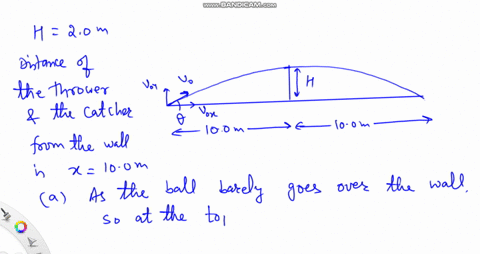 WWW.BANDICAM.COM
H = 2.0 m
Distance of
the thrower
& the catcher
from the wall
is x = 10.0 m
V₀y V₀
θ V₀x
H
10.0m 10.0m
(a) As the ball barely goes over the wall.
so at the to